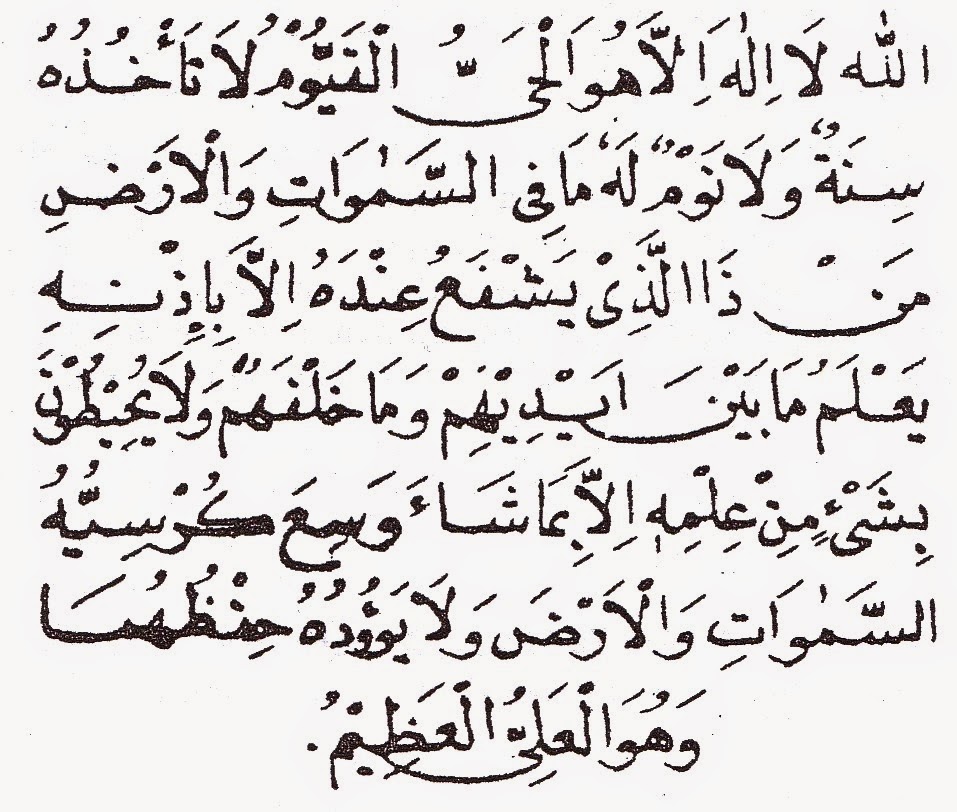 اللّٰهُ لَا اِلٰهَ اِلَّا هُوَ الْحَيُّ الْقَيُّوْمُ لَا تَأْخُذُهُ
سِنَةٌ وَلَا نَوْمٌ لَهُ مَا فِى السَّمٰوَاتِ وَالْاَرْضِ
مَنْ ذَا الَّذِىْ يَشْفَعُ عِنْدَهُ اِلَّا بِاِذْنِهِ
يَعْلَمُ مَا بَيْنَ اَيْدِيْهِمْ وَمَا خَلْفَهُمْ وَلَا يُحِيْطُوْنَ
بِشَىْءٍ مِنْ عِلْمِهٖ اِلَّا بِمَا شَاءَ وَسِعَ كُرْسِيُّهُ
السَّمٰوَاتِ وَالْاَرْضَ وَلَا يَؤُوْدُهُ حِفْظُهُمَا
وَهُوَ الْعَلِيُّ الْعَظِيْمُ.